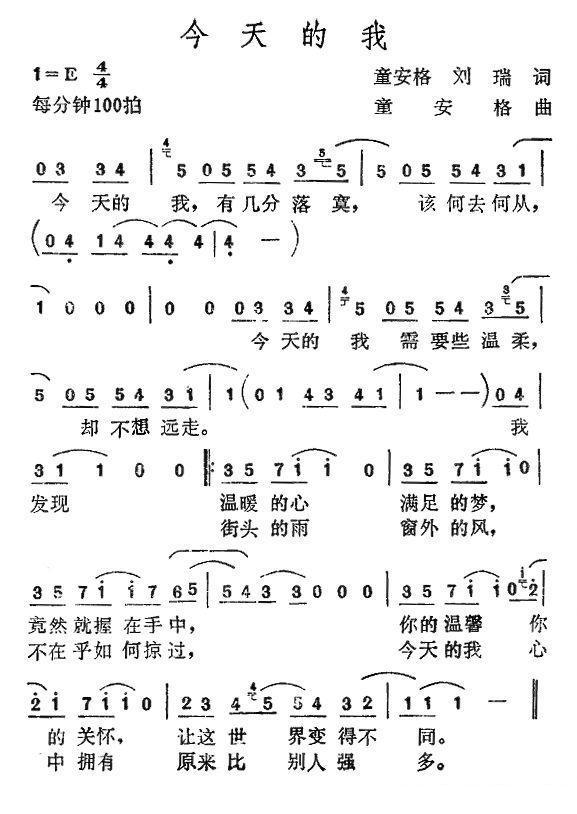 今天的我
1=E 4/4
童安格 刘瑞 词
每分钟100拍
童安格 曲
03 34 | 5 05 54 3 5 | 5 05 54 31 |
今 天的 我, 有 几分 落 寞, 该 何去 何从,
(04 14 44 4 | 4 —)
1 0 0 0 | 0 0 03 34 | 5 05 54 3 5 |
今 天的 我 需 要些 温 柔,
5 05 54 31 | 1 (01 43 41 | 1 — —) 04 |
却 不想 远走。 我
31 1 0 0 |: 35 71 1 0 | 35 71 10 |
发现 温暖 的心 满足 的梦,
街头 的雨 窗外 的风,
35 71 17 65 | 54 3 3 0 0 0 | 35 71 10 2 |
竟然 就握 在手 中, 你的 温馨 你
不在 乎如 何掠 过, 今天 的我 心
21 71 1 0 | 23 45 54 32 | 11 1 — ‖
的 关怀, 让这 世 界变 得不 同。
中 拥有 原来 比 别人 强 多。